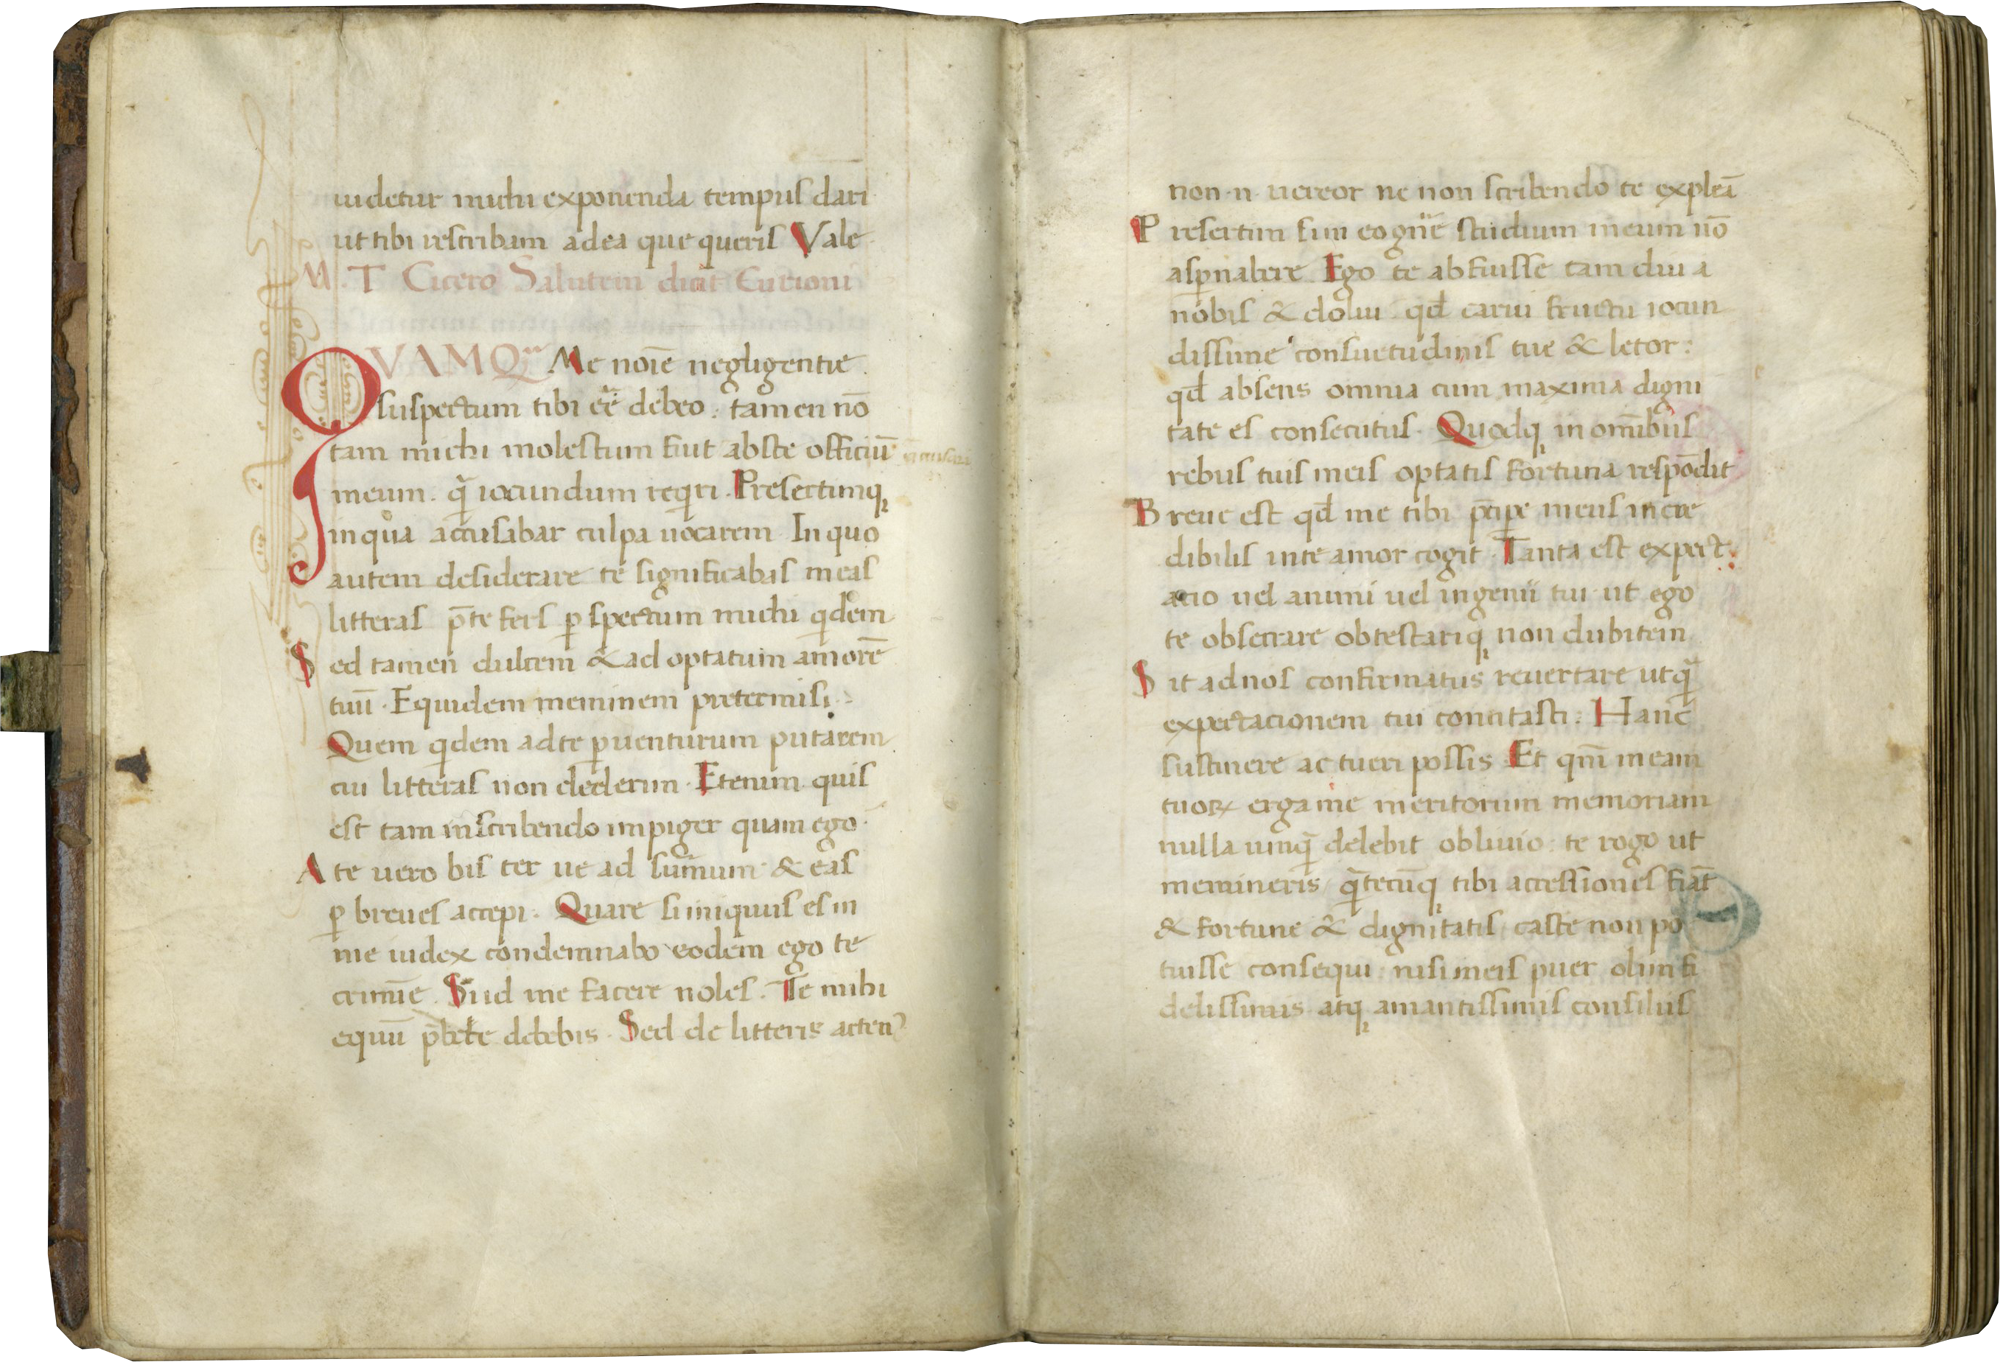 uidetur michi exponenda tempus dari
ut tibi rescribam ad ea que queris Vale
M. T Cicero Salutem dicit Curioni
QVAMQᵃᵐ Me noīe negligentie.
suspectum tibi eē debeo. tamen nō
tam michi molestum fuit abste officiū
meum. q̄ iocundum reqiri. Presertimq
in qua accusabar culpa uacarem In quo
autem desiderare te significabas meas
litteras p̄te fers p spectum michi qdem
Sed tamen dulcem & ad optatum amorē
tuū. Equidem neminem pretermisi.
Quem qdem adte puenturum putarem
cui litteras non dederim. Etenim quis
est tam inscribendo impiger quam ego.
A te uero bis ter ue ad summum & eas
p breues accepi. Quare si iniquus es in
me iudex condemnabo eodem ego te
crimīe. Sin id me facere noles. Te mihi
equū p̄bere debebis. Sed de litteris acten
non .n. uereor ne non scribendo te expleā
Presertim si in eo gn̄e studium meum nō
aspnabere Ego te abfuisse tam diu a
nobis & dolui qd carui fructu iocun
dissime consuetudinis tue & letor:
qd absens omnia cum maxima digni
tate es consecutus. Quodq in omībus
rebus tuis meis optatis fortuna respōdit
Breue est qd me tibi p̄cipe meus incre
dibilis inte amor cogit. Tanta est expect
acio uel animi uel ingenii tui ut ego
te obsecrare obtestariq non dubitem
Sit ad nos confirmatus reuertare ut q̄
expectacionem tui concitasti. Hanc
sustinere ac tueri possis Et qm̄ meam
tuoꝝ erga me meritorum memoriam
nulla umq̄ delebit obliuio te rogo ut
memineris q̄tecūq tibi accessiones fiāt
& fortune & dignitatis easte non po
tuisse consequi nisi meis puer olim fi
delissimis atq amantissimis consiliis